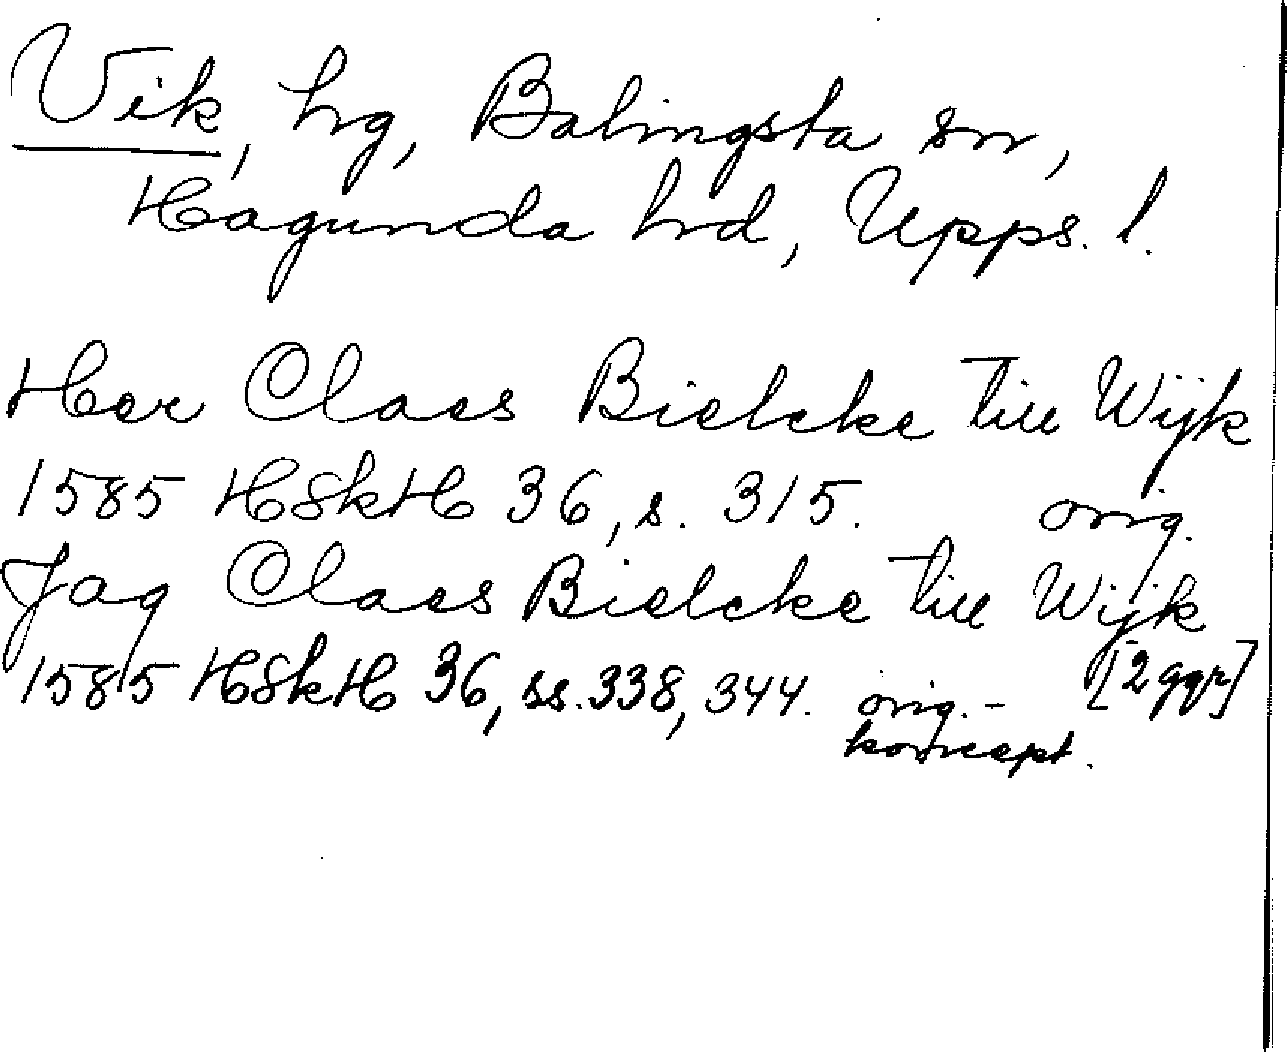 Vik, hg, Balingsta sn,
Hagunda hd, Upps. l.
Her Claes Bielcke till Wijk
1585 HSkH 36, s. 315. orig.
Jag Claes Bielcke till Wijk
1585 HSkH 36, ss. 338, 344. orig.- [2 ggr]
koncept.